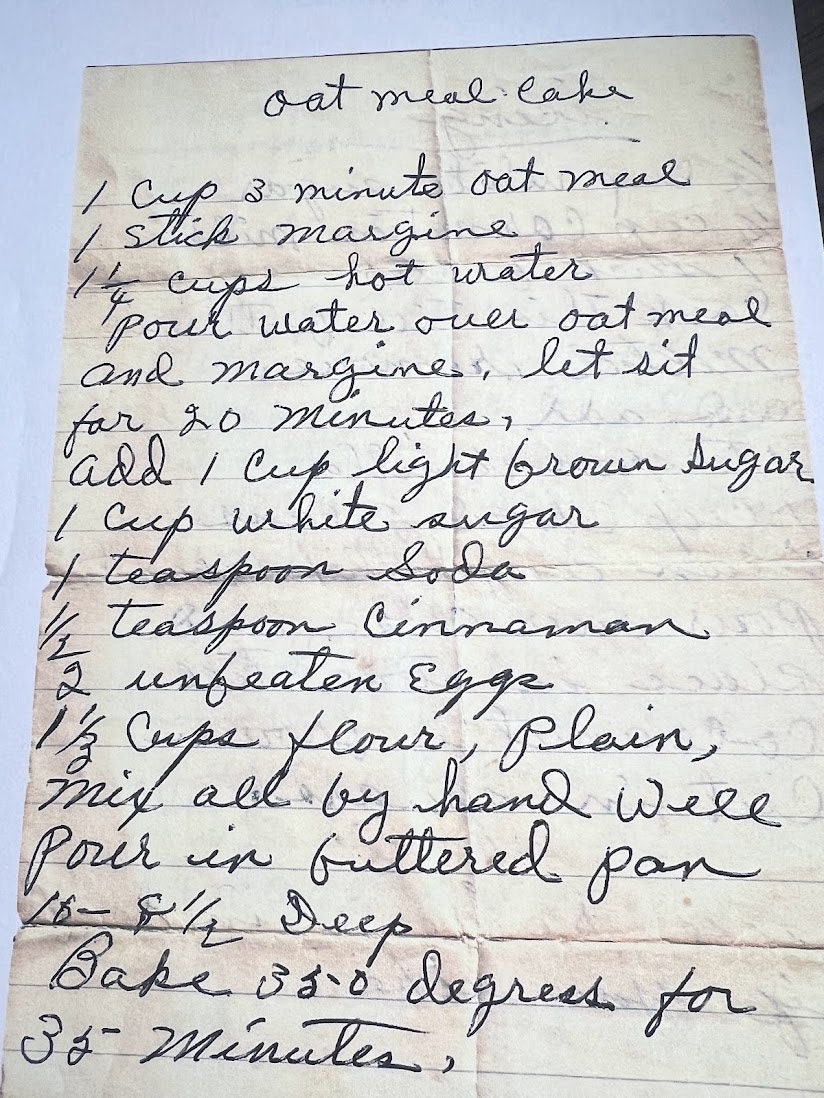 oat meal cake
1 Cup 3 minute oat meal
1 stick margine
1 1/4 cups hot water
pour water over oat meal
and margine, let sit
for 20 minutes,
add 1 Cup light brown sugar
1 Cup white sugar
1 teaspoon Soda
1/2 teaspoon Cinnaman
2 unbeaten Eggs
Cups flour, Plain,
Mix all by hand Well
Pour in buttered pan
Deep
Bake 350 degress for
35 Minutes,